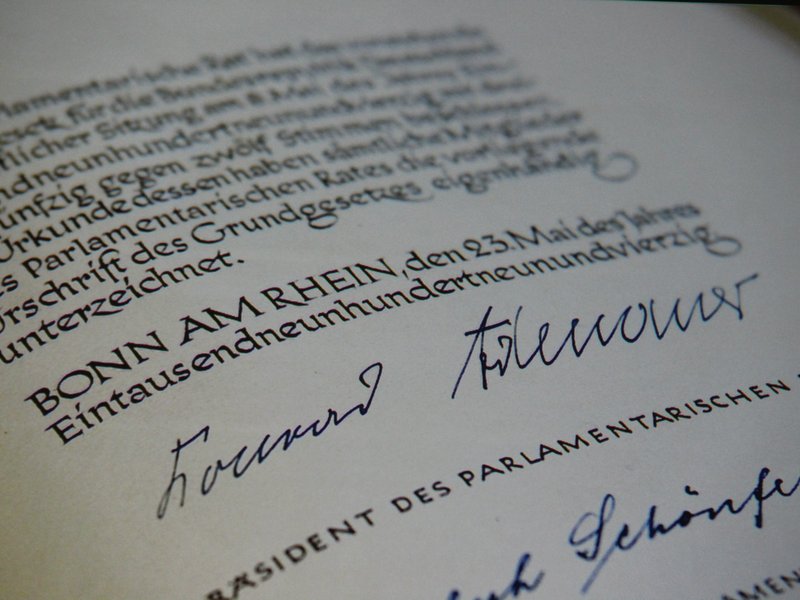 lamentarische Rat hat das vorstehende
esetz für die Bundesrepublik Deutschland
tlicher Sitzung am 8. Mai des Jahres Ein-
endneunhundertneunundvierzig mit drei-
ünfzig gegen zwölf Stimmen beschlossen.
Urkunde dessen haben sämtliche Mitglieder
es Parlamentarischen Rates die vorliegende
rschrift des Grundgesetzes eigenhändig
unterzeichnet.
BONN AM RHEIN, den 23. Mai des Jahres
Eintausendneunhundertneunundvierzig
Konrad Adenauer
RÄSIDENT DES PARLAMENTARISCHEN
Schönfe
AMEN